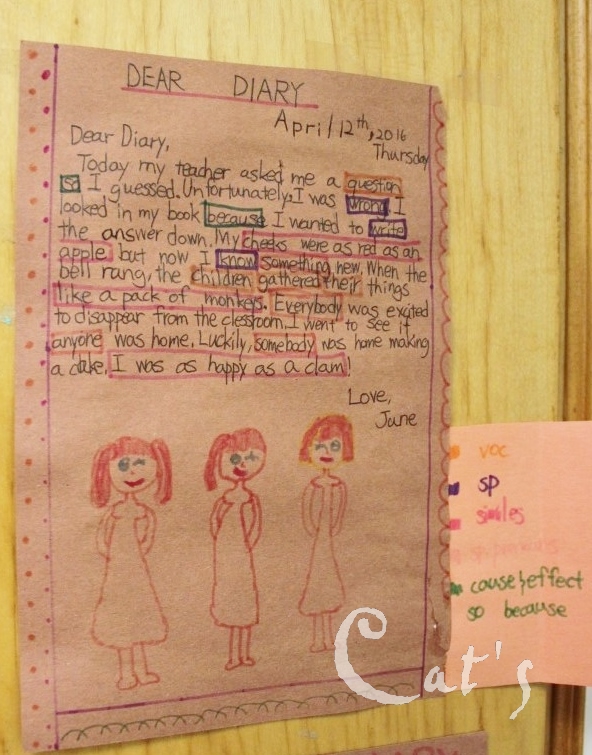 DEAR DIARY
April 12th, 2016
Thursday
Dear Diary,
Today my teacher asked me a question
so I guessed. Unfortunately, I was wrong. I
looked in my book because I wanted to write
the answer down. My cheeks were as red as an
apple but now I know something new. When the
bell rang, the children gathered their things
like a pack of monkeys. Everybody was excited
to disappear from the classroom. I went to see if
anyone was home. Luckily, somebody was home making
a cake. I was as happy as a clam!
Love,
June
voc
sp
similes
cause & effect
so because
Cat's